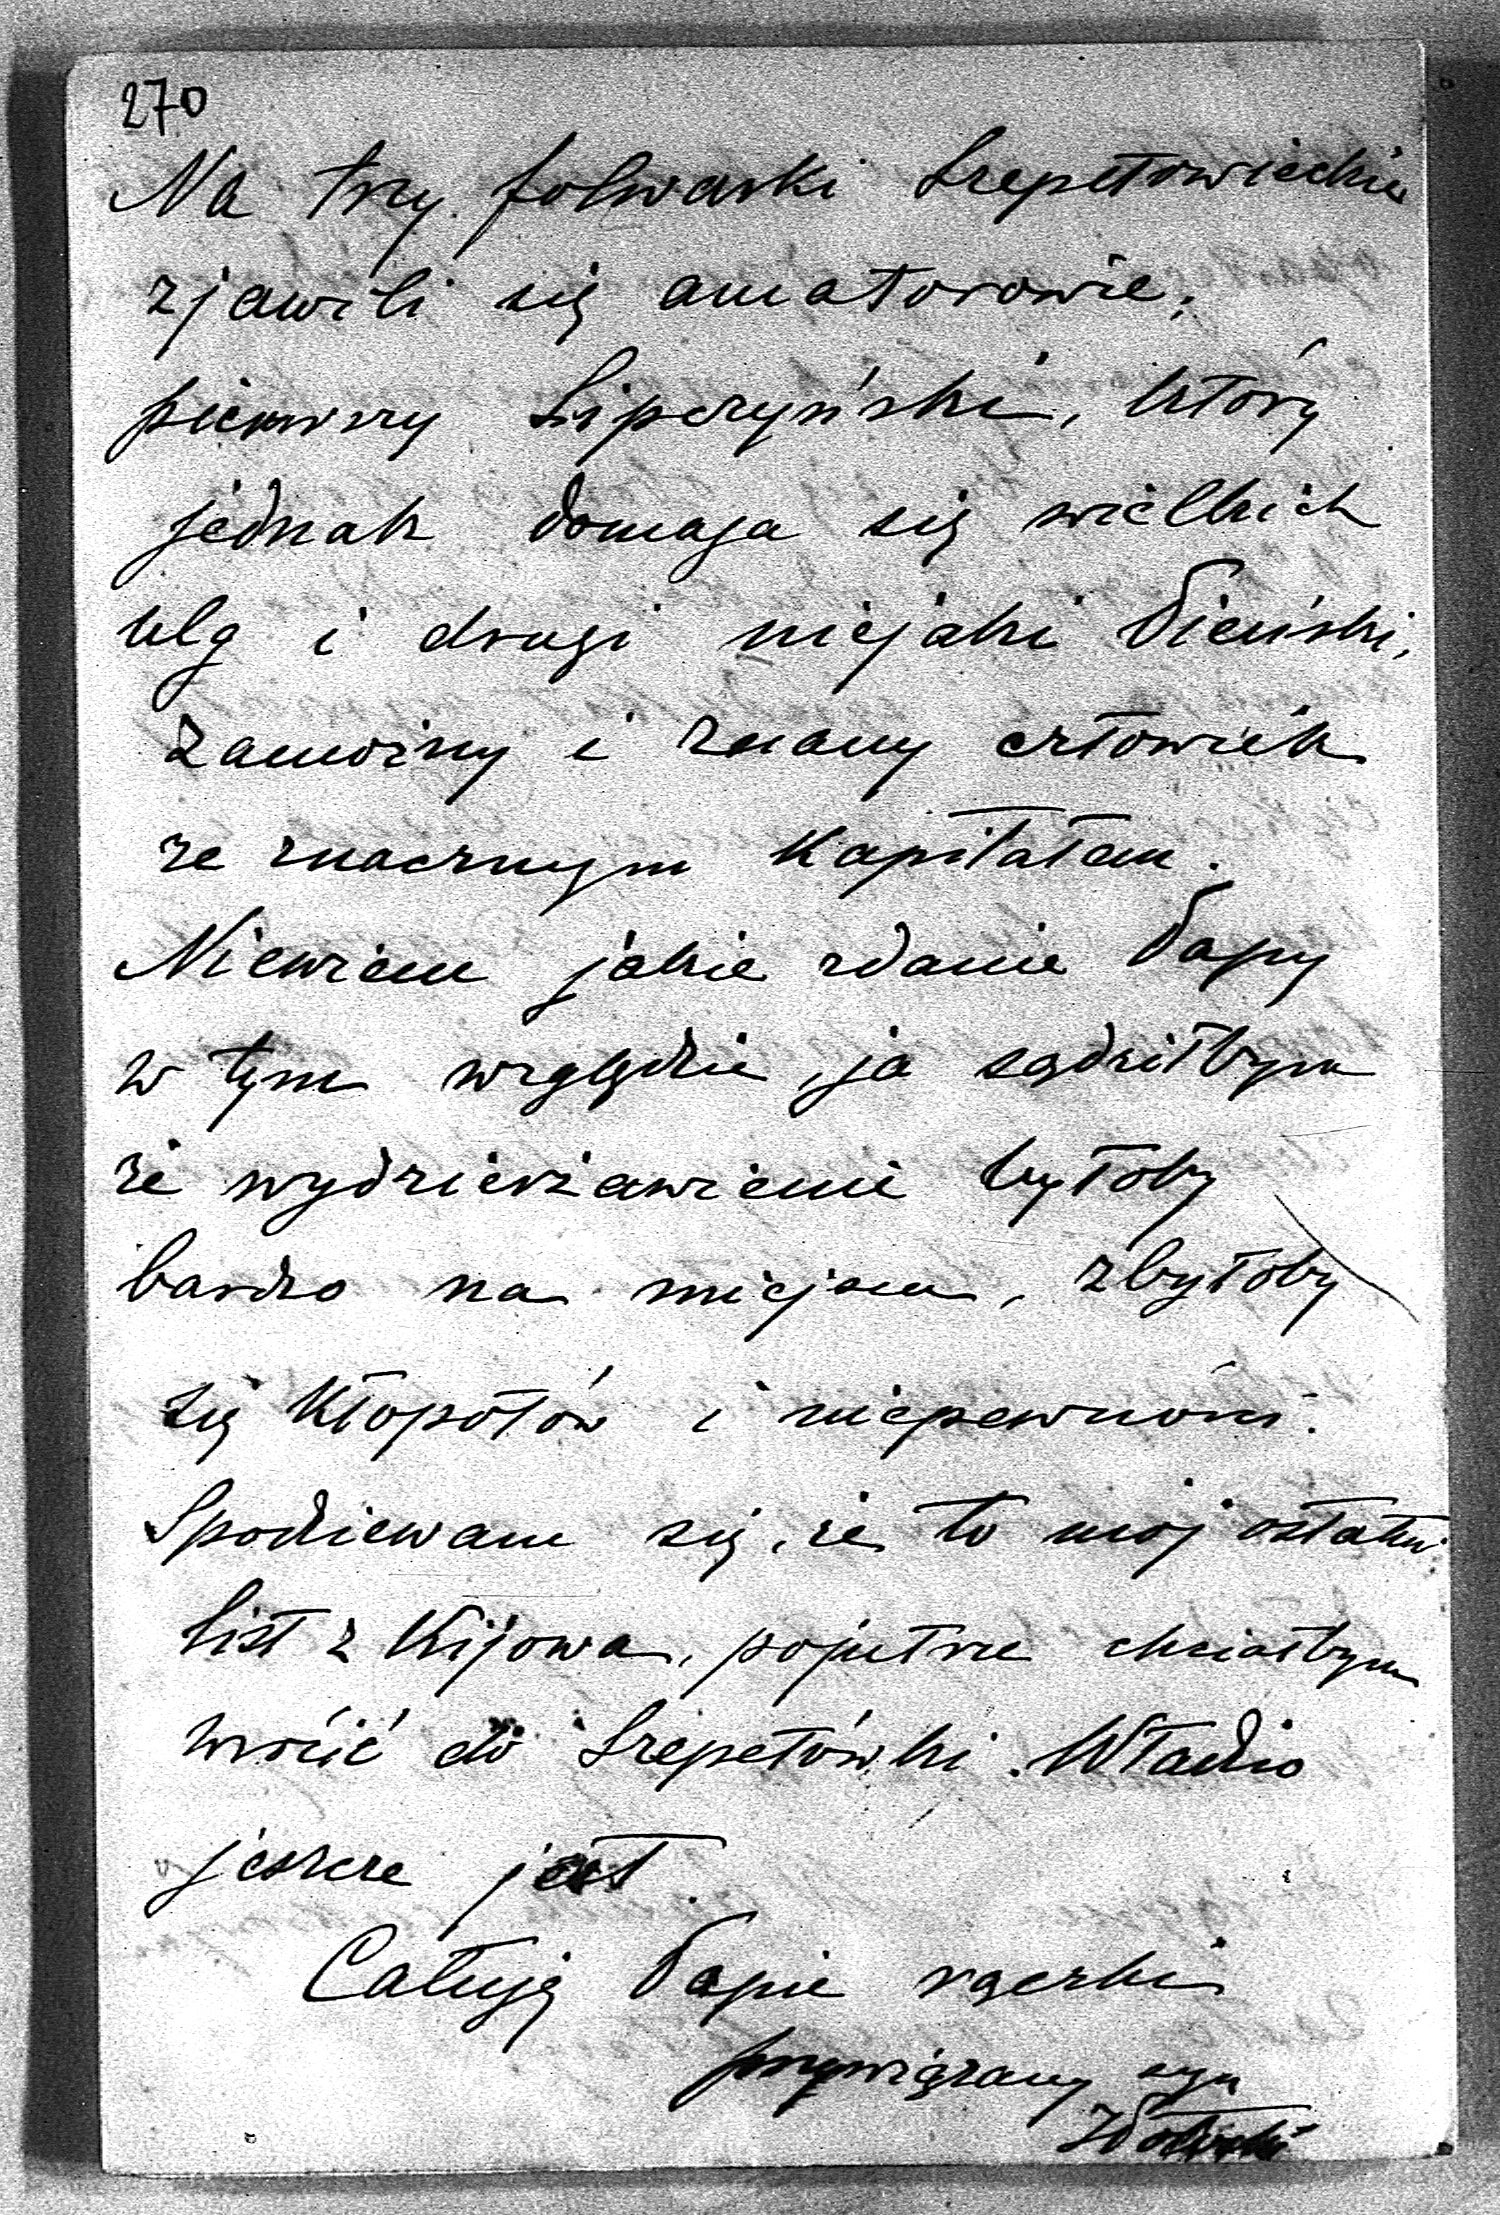 270
Na trzy folwarki Szepetowieckie
zjawili się amatorowie,
pierwszy Lipczyński, który
jednak domaga się wielkich
ulg i drugi niejaki Pieński,
zamożny i znany człowiek
ze znacznym kapitałem.
Niewiem jakie zdanie Papy
w tym względzie, ja sądziłbym
że wydzierżawienie byłoby
bardzo na miejscu, zbyłoby
się kłopotów i niepewności.
Spodziewam się, że to mój ostatni
list z Kijowa, pojutrze chciałbym
wrócić do Szepetówki. Władzio
jeszcze jest.
Całuję Papie rączki
przywiązany syn